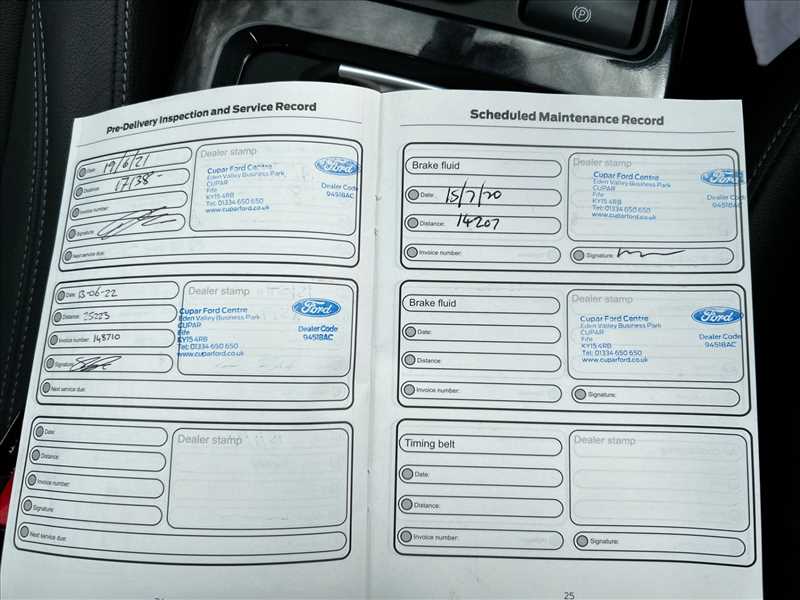 Pre-Delivery Inspection and Service Record
Date: 19/6/21
Distance: 17138-
Invoice number:
Signature:
Next service due:
Dealer stamp
Cupar Ford Centre
Eden Valley Business Park
CUPAR
Fife
KY15 4RB
Tel: 01334 650 650
www.cuparford.co.uk
Ford
Dealer Code
94518AC
Date: 13-06-22
Distance: 25223
Invoice number: 148710
Signature:
Next service due:
Dealer stamp
Cupar Ford Centre
Eden Valley Business Park
CUPAR
Fife
KY15 4RB
Tel: 01334 650 650
www.cuparford.co.uk
Ford
Dealer Code
94518AC
Date:
Distance:
Invoice number:
Signature:
Next service due:
Dealer stamp
Scheduled Maintenance Record
Brake fluid
Date: 15/7/20
Distance: 14207
Invoice number:
Dealer stamp
Cupar Ford Centre
Eden Valley Business Park
CUPAR
Fife
KY15 4RB
Tel: 01334 650 650
www.cuparford.co.uk
Ford
Dealer Code
94518AC
Signature:
Brake fluid
Date:
Distance:
Invoice number:
Dealer stamp
Cupar Ford Centre
Eden Valley Business Park
CUPAR
Fife
KY15 4RB
Tel: 01334 650 650
www.cuparford.co.uk
Ford
Dealer Code
94518AC
Signature:
Timing belt
Date:
Distance:
Invoice number:
Dealer stamp
Signature:
25